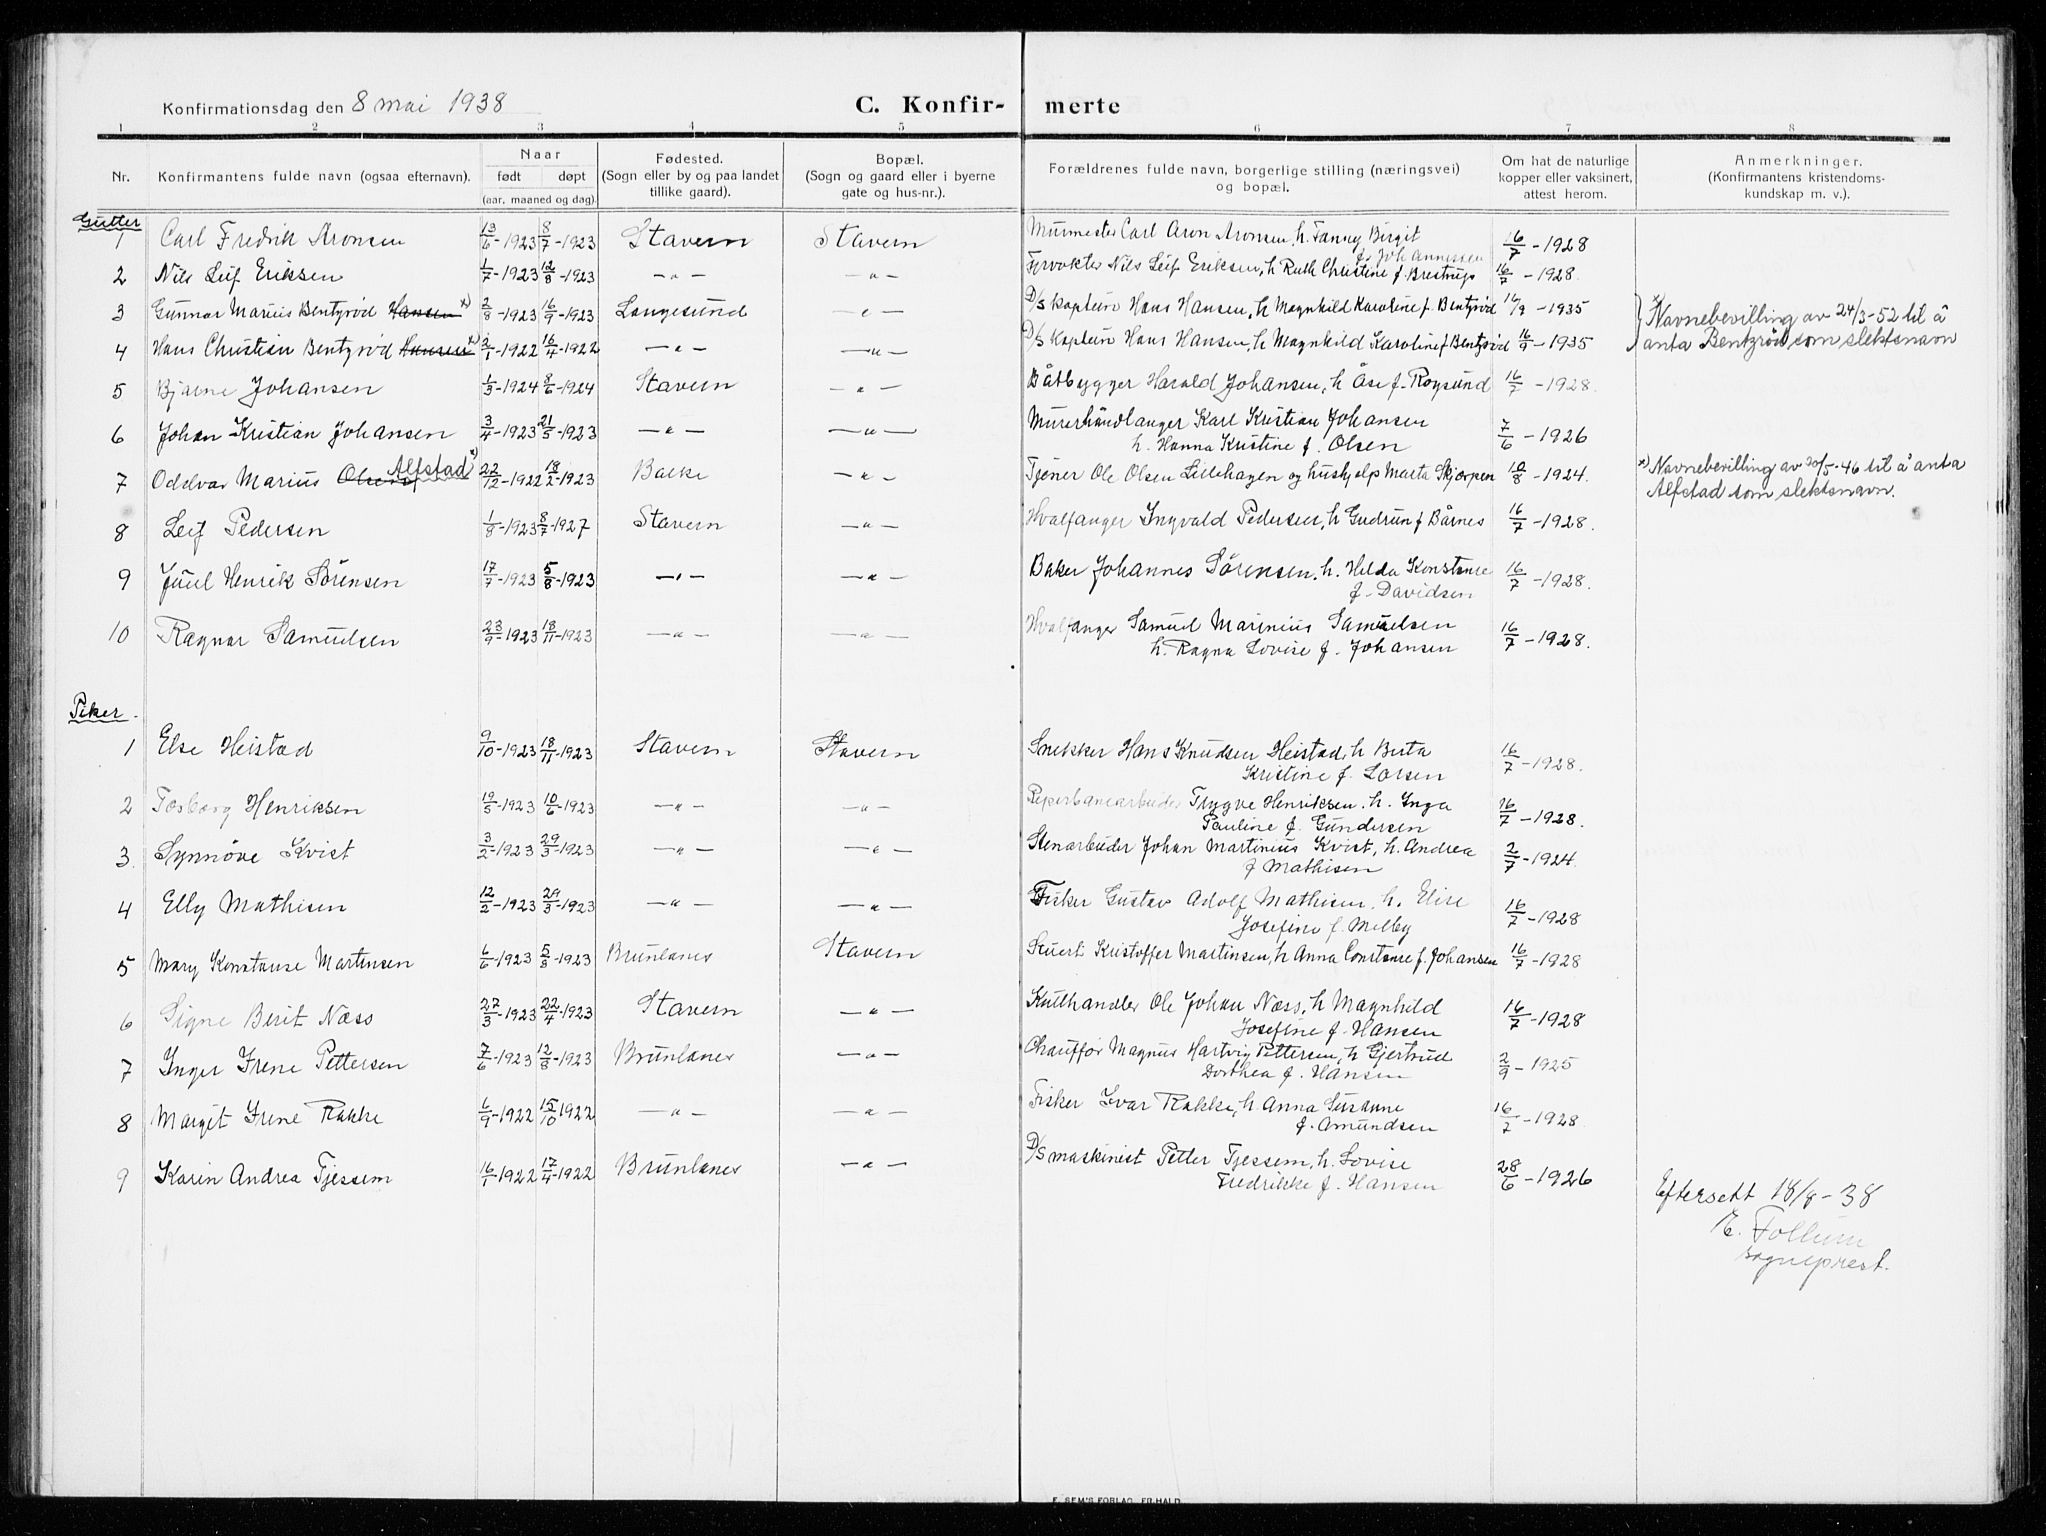 Konfirmationsdag den 8 mai 1938
C. Konfir- merte
1 2 3 4 5 6 7 8
Nr. Konfirmantens fulde navn (ogsaa efternavn). Naar født døpt (aar, maaned og dag). Fødested. (Sogn eller by og paa landet tillike gaard). Bopæl. (Sogn og gaard eller i byerne gate og hus-nr.). Forældrenes fulde navn, borgerlige stilling (næringsvei) og bopæl. Om hat de naturlige kopper eller vaksinert, attest herom. Anmerkninger. (Konfirmantens kristendoms- kundskap m. v.).
Gutter
1 Carl Fredrik Aronsen 13/6-1923 8/7-1923 Stavern Stavern Murmester Carl Aron Aronsen, h. Fanny Birgit f. Johannessen 16/7-1928
2 Nils Leif Eriksen 1/7-1923 12/8-1923 -"- -"- Fyrvokter Nils Leif Eriksen, h Ruth Christine f. Brestrup 16/7-1928.
3 Gunnar Marius Bentzrød Hansen x) 2/8-1923 16/9-1923 Langesund -"- D/s kaptein Hans Hansen, h Magnhild Karoline f Bentzrød 16/9-1935 x) Navnebevilling av 24/3-52 til å
4 Hans Christian Bentzrød Hansen x) 2/1-1922 16/4-1922 -"- -"- D/s kaptein Hans Hansen, h Magnhild Karoline f Bentzrød 16/9-1935 anta Bentzrød som slektsnavn
5 Bjarne Johansen 1/3-1924 8/6-1924 Stavern -"- Båtbygger Harald Johansen, h Åse f. Roysund 16/7-1928.
6 Johan Kristian Johansen 3/4-1923 21/5-1923 -"- -"- Murerhåndlanger Karl Kristian Johansen h. Hanna Kristine f. Olsen 7/6-1926
7 Oddvar Marius Olsen Alfstad x) 22/12-1922 18/2-1923 Bakke -"- Tjener Ole Olsen Lillehagen og hushjelp Marta Skjorpen 10/8-1924. x) Navnebevilling av 20/5-46 til å anta Alfstad som slektsnavn.
8 Leif Pedersen 1/8-1923 8/7-1927 Stavern -"- Hvalfanger Ingvald Pedersen, h Gudrun f Bårnes 16/7-1928.
9 Juul Henrik Sörensen 17/7-1923 5/8-1923 -"- -"- Baker Johannes Sörensen. h. Hilda Konstanse f. Davidsen 16/7-1928.
10 Ragnar Samuelsen 23/9-1923 18/11-1923 -"- -"- Hvalfanger Samuel Marinius Samuelsen h. Ragna Lovise f. Johansen 16/7-1928.
Piker.
1 Else Heistad 9/10-1923 18/11-1923 Stavern Stavern Snekker Hans Knudsen Heistad, h Berta Kristine f. Larsen 16/7-1928.
2 Torborg Henriksen 19/5-1923 10/6-1923 -"- -"- Reperbanearbeider Trygve Henriksen. h. Inga Pauline f. Gundersen 16/7-1928.
3 Synnöve Kvist 3/2-1923 29/3-1923 -"- -"- Stenarbeider Johan Martinius Kvist, h. Andrea f Mathisen 2/7-1924.
4 Elly Mathisen 12/2-1923 29/3-1923 -"- -"- Fisker Gustav Adolf Mathisen, h. Elise Josefine f. Melby 16/7-1928
5 Mary Konstanse Martinsen 6/6-1923 5/8-1923 Brunlanes Stavern Stuert Kristoffer Martinsen, h Anna Constanse f. Johansen 16/7-1928
6 Signe Berit Næss 27/3-1923 22/4-1923 Stavern -"- Kulhandler Ole Johan Næss, h Magnhild Josefine f. Hansen 16/7-1928
7 Inger Irene Pettersen 7/6-1923 12/8-1923 Brunlanes -"- Chauffør Magnus Hartvig Pettersen, h Gjertrud Dorthea f. Hansen 2/9-1925
8 Margit Irene Rakke 6/9-1922 15/10 1922 -"- -"- Fisker Ivar Rakke, h. Anna Susanne f. Amundsen 16/7-1928
9 Karin Andrea Tjessem 16/1-1922 17/4-1922 Brunlanes -"- D/s maskinist Petter Tjessem, h. Lovise Fredrikke f. Hansen 28/6-1926
Eftersett 18/8-38
E. Follum
sogneprest.
F. SEM'S FORLAG, FR.HALD